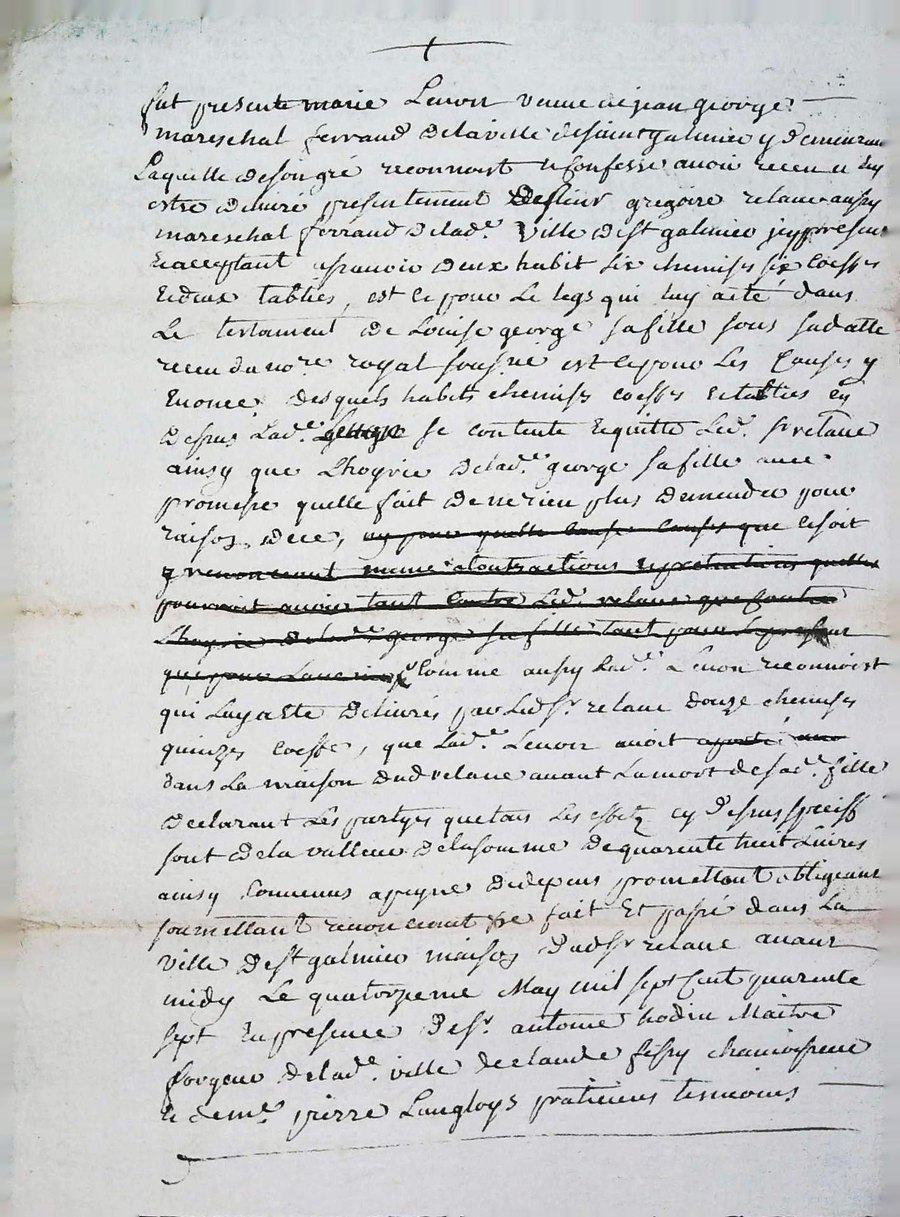 fut presente marie Lenoir veuve de jean george
mareschal ferrand de la ville de saint galmier y demeurant
Laquelle de son gré reconnoist et confesse avoir receu et luy
estre delivré presentement de sieur gregoire relave aussy
mareschal ferrand de lad.e ville de st galmier icy present
et acceptant asçavoir deux habit six chemises six coeffes
et deux tablies, est ce pour le legs qui luy a eté dans
Le testament de Louise george sa fille sous sa datte
receu du no.re royal soussné est ce pour les causes y
enoncé, desquels habits chemises coeffes et tablies cy
dessus Lad.e george se contente et quitte led. sr relave
ainsy que Lhoyrie de lad.e george sa fille avec
promesse quelle fait de ne rien plus demender pour
raison de ce, ny pour quelle cause que ce soit
y renoncent meme a toutes actions et pretentions quelle
pourroit avoir tant contre led. relave que contre
Lhoyrie de lad.e george sa fille tant pour le present
que pour Lavenir comme aussy Lad.e Lenoir reconnoist
qui Luy a esté delivrés par led sr relave douze chemises
quinzes coeffe, que lad.e Lenoir avoit aporté
dans La maison dud relave avant La mort de sad.e fille
declarant Les partyes que tous les effets cy dessus speciff
sont de la valleur de la somme de quarente huit Livres
ainsy convenus a peyne de depens promettant obligeant
soumettant renoncent &e fait et passé dans La
ville de st galmier maison dud sr relave avant
midy Le quatorzieme May mil sept cent quarente
sept en presence de sr. antoine hodin Maitre
forgeur de lad.e ville de claude fessy chamoiseur
et de me. pierre Langloys praticiens tesmoins